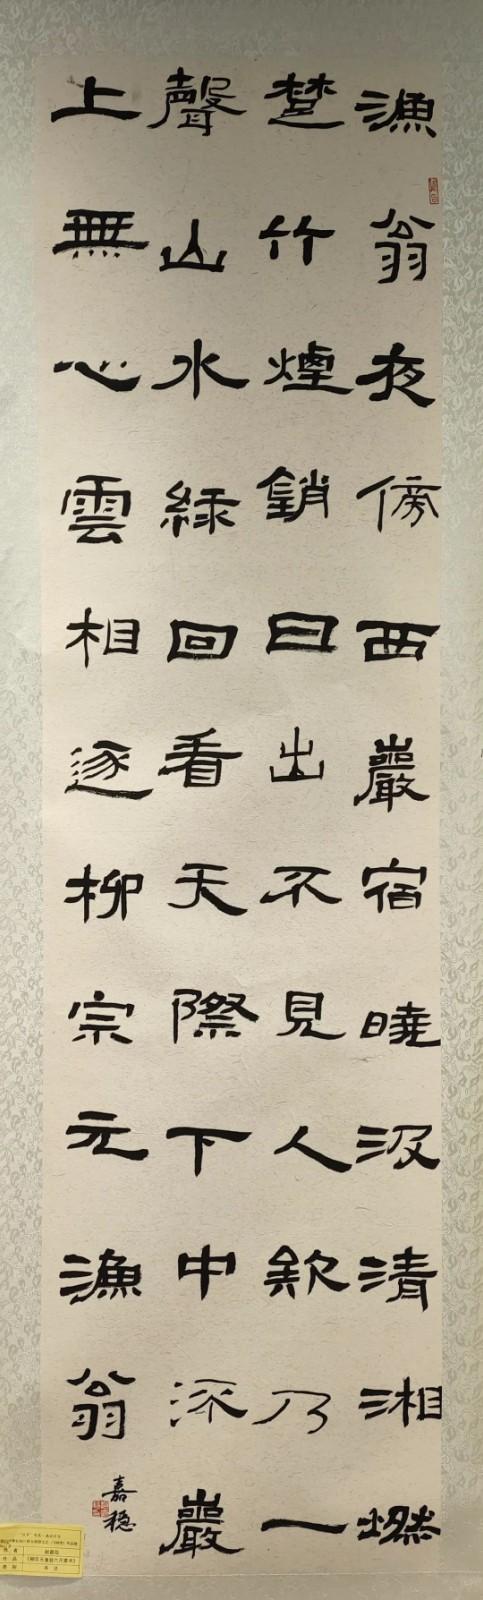 漁翁夜傍西巖宿曉汲清湘燃
楚竹煙銷日出不見人欸乃一
聲山水綠回看天際下中流巖
上無心雲相逐柳宗元漁翁
嘉穗